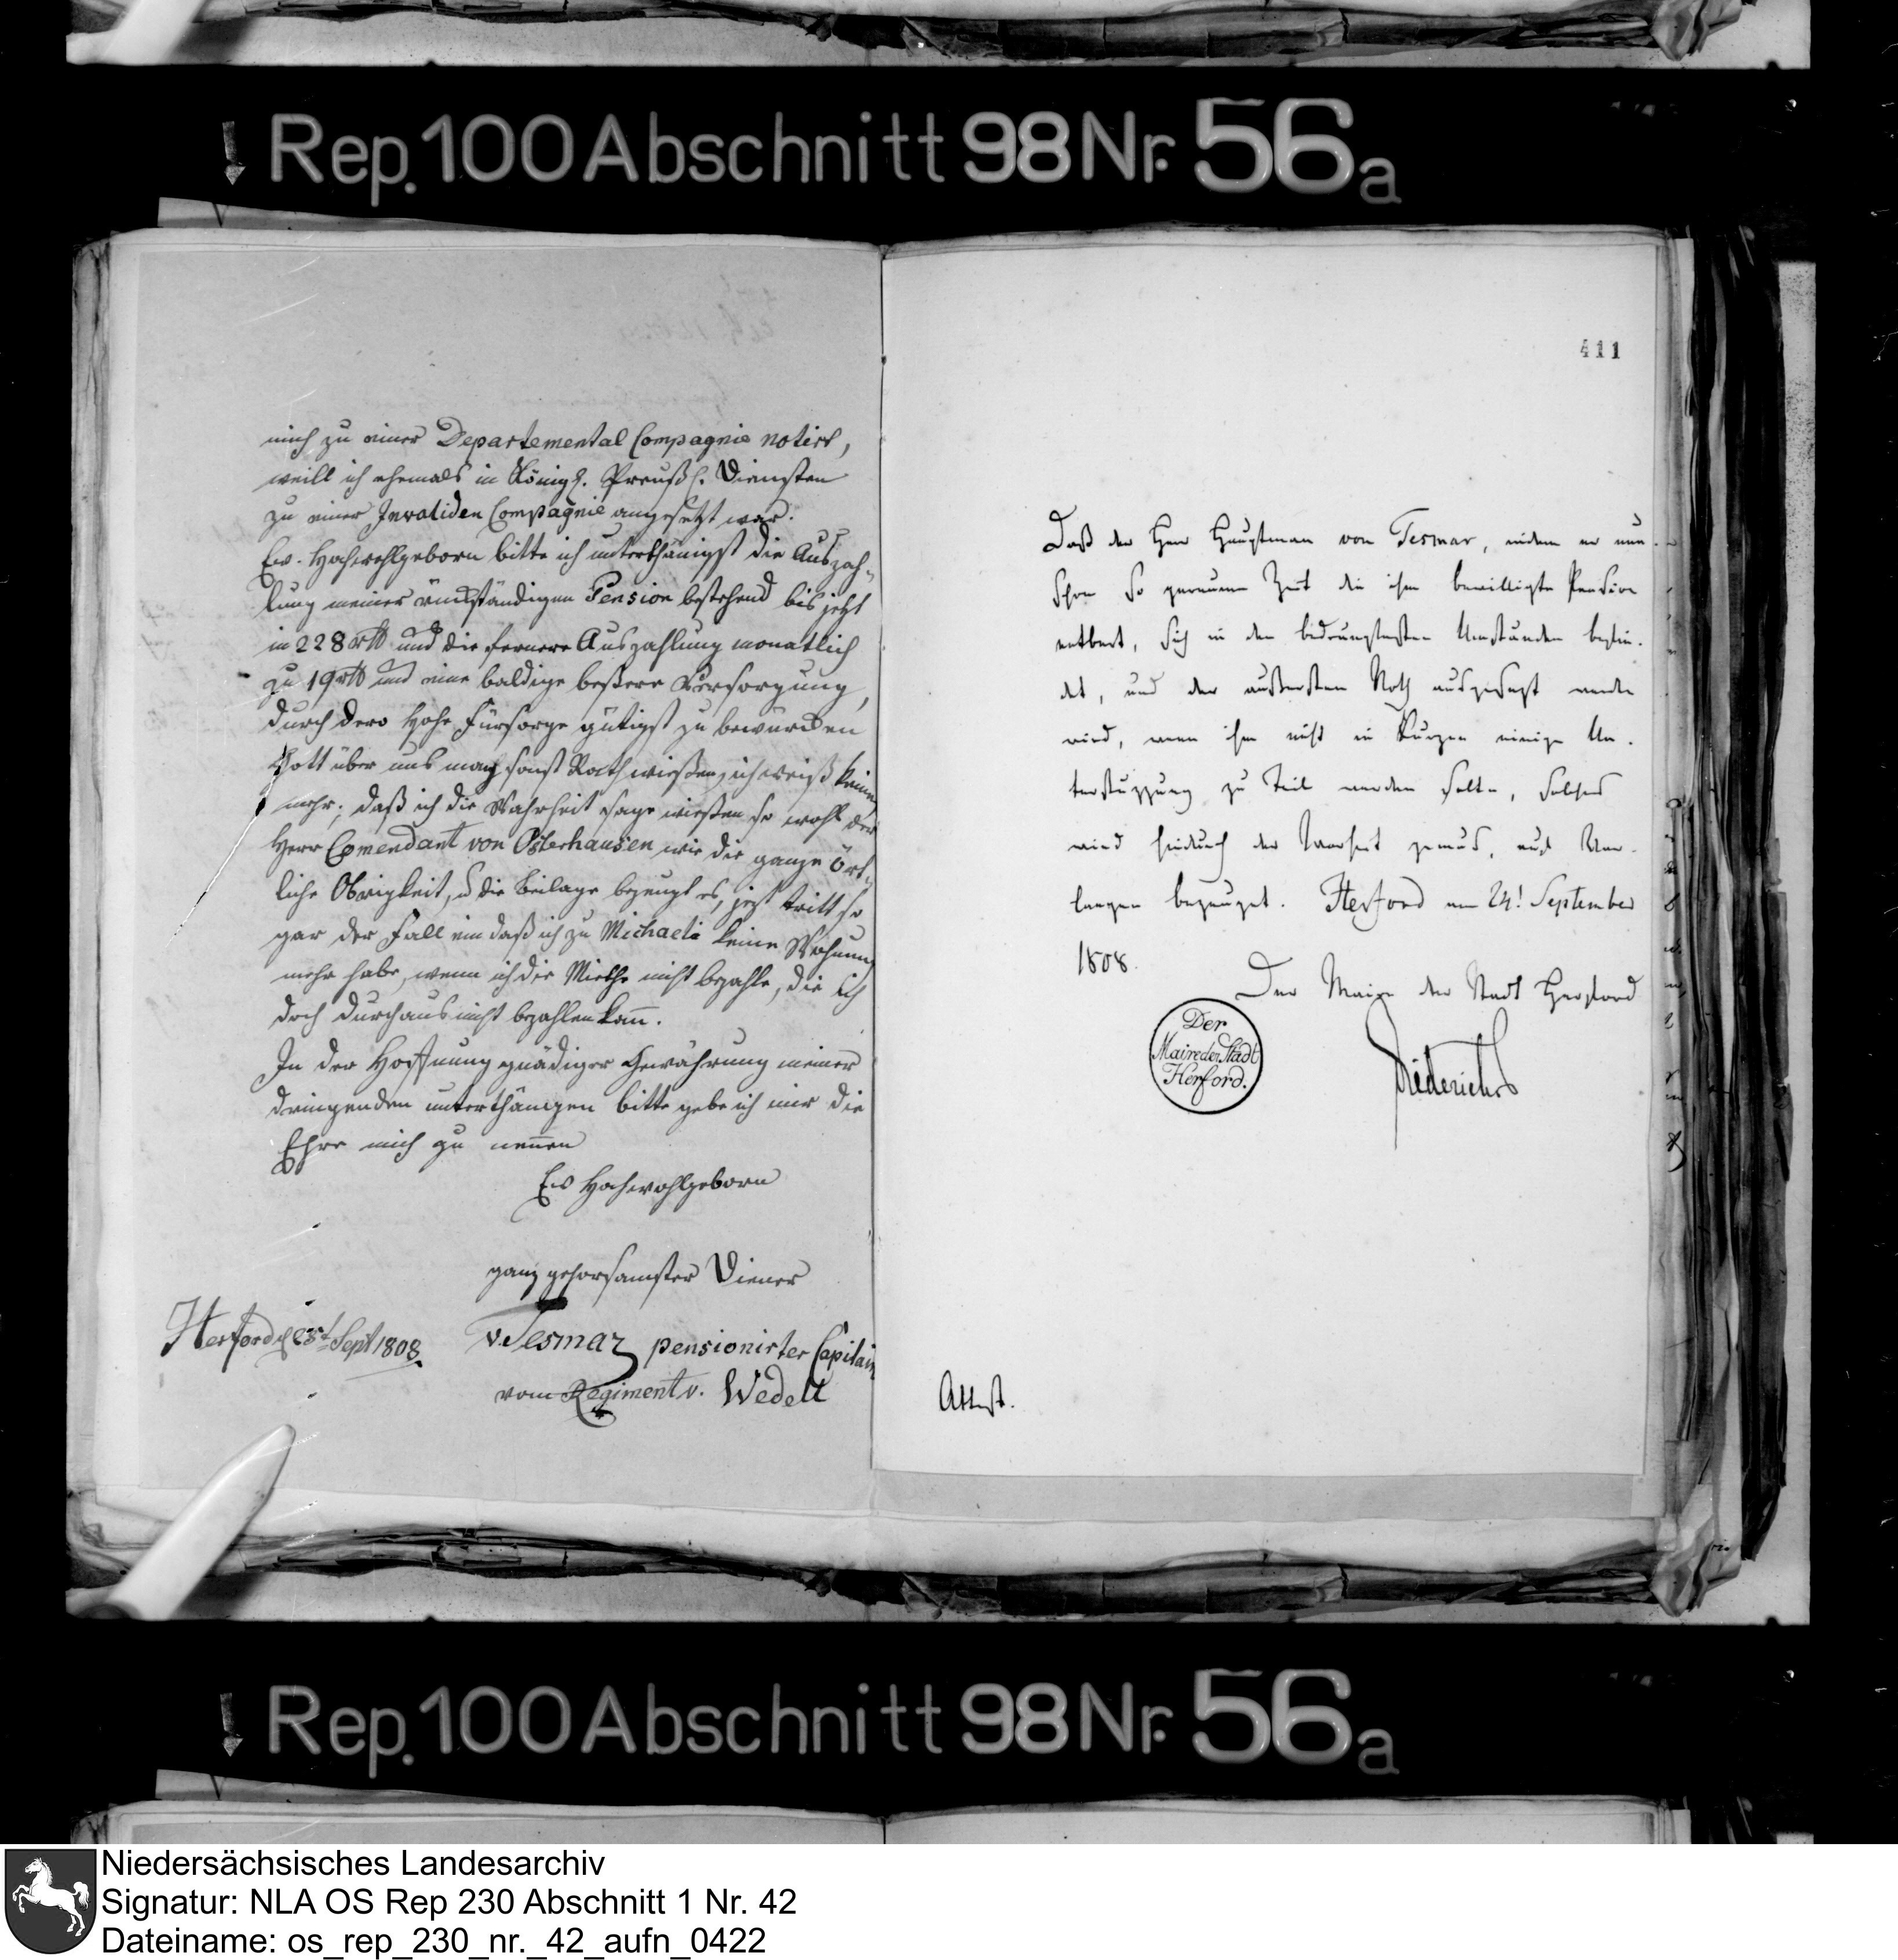 Rep. 100 Abschnitt 98 Nr. 56a
mich zu einer Departemental Compagnie notirt,
weill ich ehemals in Königl. Preußl. Diensten
zu einer Invaliden Compagnie angesetzt war.
Ew. Hochwohlgeborn bitte ich unterthänigst die Auszah-
lung meiner rückständigen Pension bestehend bis jetzt
in 228 rth und die fernere Auszahlung monatlich
zu 19 rth und eine baldige beßere Versorgung,
durch dero Hohe Fürsorge gütigst zu bewürcken
Gott über uns mag sonst Rath wießen, ich weiß keinen
mehr; daß ich die Wahrheit sage wießen so wohl der
Herr Comendant von Osterhausen wie die ganze ört-
liche Obrigkeit, u die Beilage bezeugt es, jezt tritt so
gar der Fall ein daß ich zu Michaeli keine Wohnung
mehr habe, wenn ich die Miethe nicht bezahle, die ich
doch durchaus nicht bezahlen kan̄.
In der Hoffnung gnädiger Gewährung meiner
dringenden unterthänigen bitte gebe ich mir die
Ehre mich zu nen̄en
Ew Hochwohlgeborn
ganz gehorsamster Diener
Herford d 25t Sept 1808
v. Tesmar pensionirter Capitain
vom Regiment v. Wedell
411
Daß der Herr Hauptman von Tesmar, indem er nun
schon so geraume Zeit die ihm bewilligte Pension
entbert, sich in den bedrängtesten Umständen befin-
det, und der äußersten Noth ausgesezt werden
wird, wenn ihm nicht in Kurzen einige Un-
terstüzzung zu Teil werden solte, solches
wird hiedurch der Warheit gemäs, auf Ver-
langen bezeuget. Herford am 24t September
1808.
Der Maire der Stadt Herford
Der
Maire der Stadt
Herford.
Diederichs
Attest.
Rep. 100 Abschnitt 98 Nr. 56a
Niedersächsisches Landesarchiv
Signatur: NLA OS Rep 230 Abschnitt 1 Nr. 42
Dateiname: os_rep_230_nr._42_aufn_0422